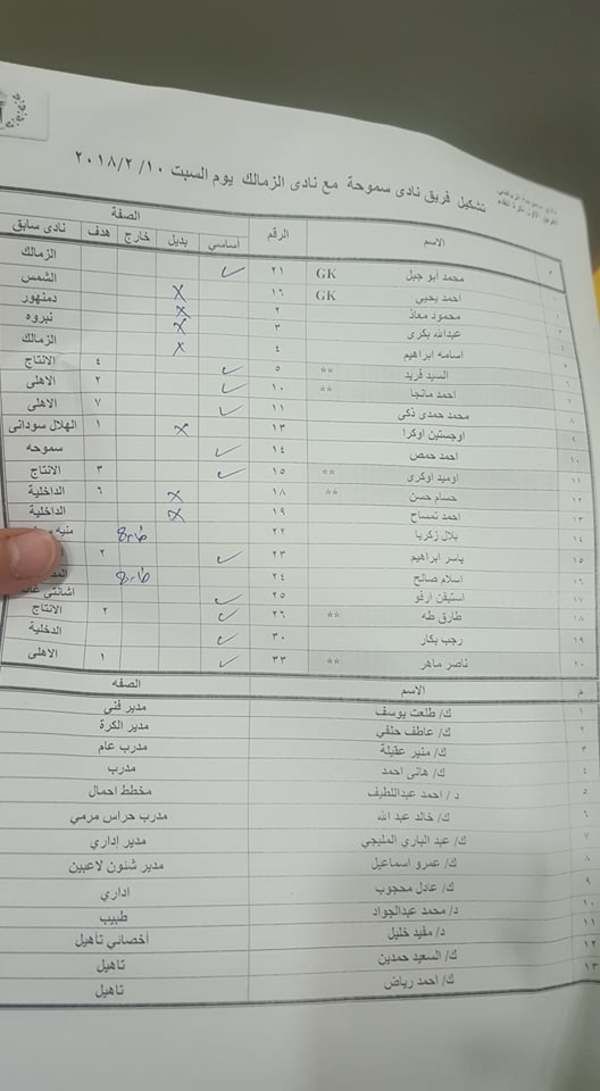 تشكيل فريق نادى سموحة مع نادى الزمالك يوم السبت ٢٠١٨/٢/١٠
م الاسم الرقم الصفة
أساسي بديل خارج هدف نادى سابق
محمد ابو جبل GK ٢١ ✓ الزمالك
احمد يحيي GK ١٦ x الشمس
محمود معاذ ٢ x دمنهور
عبدالله بكرى ٣ x نبروه
اسامه ابراهيم ٤ x الزمالك
السيد فريد ** ٥ ✓ ٤ الانتاج
احمد مانجا ** ١٠ ✓ ٢ الاهلى
محمد حمدى ذكى ١١ ✓ ٧ الاهلى
اوجستين اوكرا ١٣ x ١ الهلال سودانى
احمد حمص ١٤ ✓ سموحه
اوميد اوكرى ** ١٥ ✓ ٣ الانتاج
حسام حسن ** ١٨ x ٦ الداخلية
احمد تمساح ١٩ x الداخلية
بلال زكريا ٢٢ خارج منيه
ياسر ابراهيم ٢٣ ✓ ٢
اسلام صالح ٢٤ خارج
استيفن ارفو ٢٥ ✓ اشانتى
طارق طه ** ٢٦ ✓ ٢ الانتاج
رجب بكار ٣٠ ✓ الدخلية
ناصر ماهر ** ٣٣ ✓ ١ الاهلى
م الاسم الصفه
١ ك/ طلعت يوسف مدير فني
٢ ك/ عاطف حنفي مدير الكرة
٣ ك/ منير عقيلة مدرب عام
٤ ك/ هانى احمد مدرب
٥ د / احمد عبداللطيف مخطط احمال
٦ ك/ خالد عبد الله مدرب حراس مرمي
٧ ك/ عبد الباري المليجي مدير إداري
٨ ك/ عمرو اسماعيل مدير شئون لاعبين
٩ ك/ عادل محجوب اداري
١٠ د/ محمد عبدالجواد طبيب
١١ د/ مفيد خليل أخصائي تأهيل
١٢ ك/ السعيد حمدين تاهيل
١٣ ك/ احمد رياض تاهيل